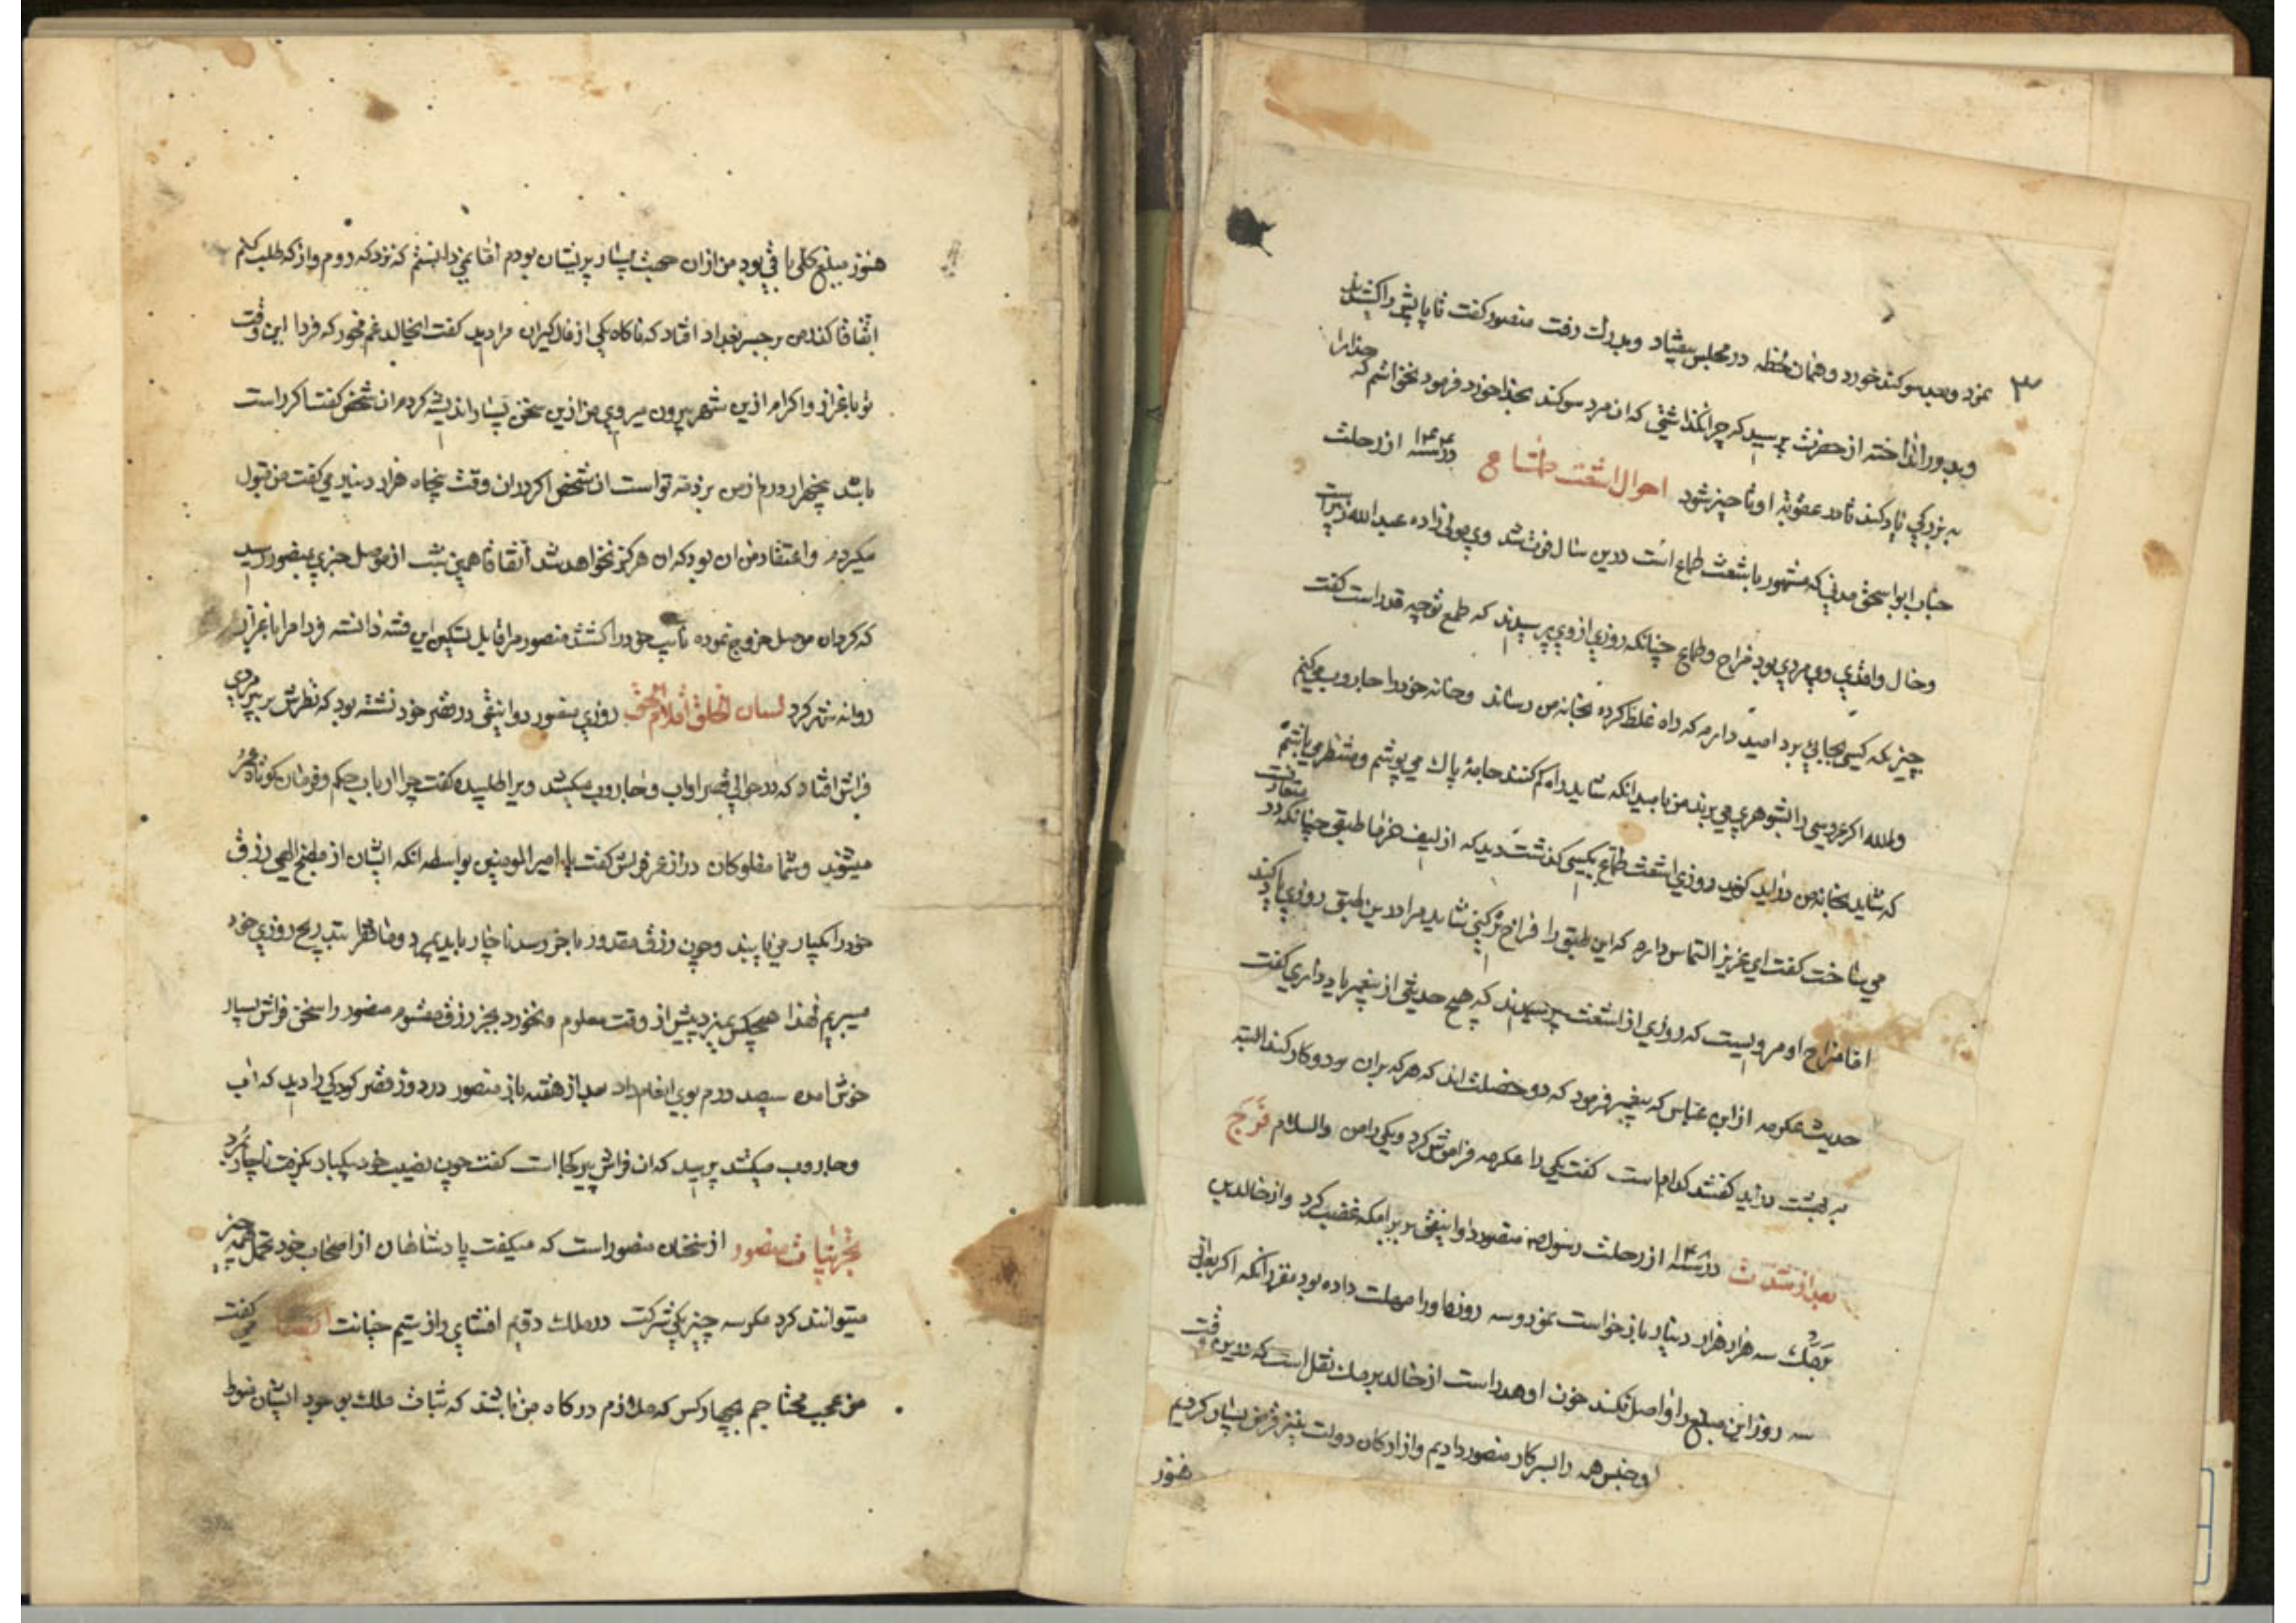 ۳
نمود وبعد سوکند خورد و همان لحظه در مجلس بیفتاد و بدرک رفت منصور کفت تا پایش را کشیدند
و بدور انداختند از حضرت پرسید که چرا نکذاشتی که ان مرد سوکند بخدا خورد فرمود نخواستم که خدا را
به بزرکی یاد کند تا در عقوبة او تاخیر شود احوال اشعث طماع در سنه ۱۴۴ از رحلت
جناب ابو اسحق مدنی که مشهور باشعث طماع است درین سال فوت شد وی مولی زاده عبدالله زبیر است
وخال واقدی ووی مردی بود مزاح و طماع چنانکه روزی از وی پرسیدند که طمع تو چه قدر است کفت
چیزیکه کسی بجائی برد امید دارم که راه غلط کرده بخانه من رساند وخانه خود را جاروب میکنم
والله اکر عروسی را بشوهری می برند من بامید انکه شاید راه کم کنند جامهٔ پاک می پوشم و منتظر می باشم
که شاید بخانه من دراید کویند روزی اشعث طماع بکسی کذشت دید که از لیف خرما طبقی چنانکه در متعارفست
می ساخت کفت ای عزیز التماس دارم که این طبق را فراخ تر کنی شاید مرا در این طبق روزی یاد کنند
اما مزاح او مرویست که روزی از اشعث پرسیدند که هیچ حدیثی از پیغمبر یاد داری کفت
حدیث عکرمه از ابن عباس که پیغمبر فرمود که دو خصلت اند که هر که بران دو کار کند البته
به بهشت دراید کفتند کدام است کفت یکی را عکرمه فراموش کرد ویکی را من والسلام فرج
بعد از شدت در سنه ۱۴۸ از رحلت رسول منصور دوانیقی بر برامکه غضب کرد واز خالد بن
برمک سه هزار هزار دینار باز خواست نمود و سه روز او را مهلت داده بود مقرر انکه اکر بعد از
سه روز این مبلغ را واصل نکند خون او هدر است از خالد برمک نقل است که درین وقت
وجنس همه را بسرکار منصور دادیم واز ارکان دولت نیز قرض بسیار کردیم
هنوز
هنوز مبلغ کلی باقی بود من ازان جهت بسیار پریشان بودم اما نمی دانستم که نزد که روم واز که طلب کنم
اتفاقا کذر من بر جسر بغداد افتاد که ناکاه یکی از فال کیران مرا دید کفت ایخالد غم مخور که فردا این وقت
تو باعزاز واکرام ازین شهر بیرون میروی من ازین سخن بسیار اندیشه کردم ان شخص کفت اکر راست
باشد پنجهزار درم از من بر ذمه تو است ان شخص اکر دران وقت پنجاه هزار دینار می کفت من قبول
میکردم واعتقاد من ان بود که ان هرکز نخواهد شد اتفاقا همین شب از موصل خبری بمنصور رسید
که کردان موصل خروج نموده نایب خود را کشتند منصور مرا قابل تسکین این فتنه دانسته فردا مرا باعزاز
روانه شهر کرد لسان الخلق اقلام الحق روزی منصور دوانیقی در قصر خود نشسته بود که نظرش بر پیر مردی
فراش افتاد که در حوالی قصر اواب وجاروب میکشد ویرا طلبیده کفت چرا ارباب حکم و فرمان کوتاه عمر
میشوند وشما مفلوکان دراز عمر فراش کفت یا امیر المومنین بواسطه انکه ایشان از مطبخ الهی رزق
خود را یکبار می یابند وچون رزق مقدور باخر رسد ناچار باید بمیرد وما فقرا بتدریج روزی خود
میبریم لهذا هیچکس نمیرد پیش از وقت معلوم ونخورد بجز رزق مقسوم منصور را سخن فراش بسیار
خوش امده سیصد درم بوی انعام داد بعد از هفته باز منصور در دور قصر کودکی را دید که اب
وجاروب میکشد پرسید که ان فراش پیر کجا است کفت چون نصیب خود یکبار بکرفت ناچار بمرد
تجربیات منصور از سخنان منصور است که میکفت پادشاهان از اصحاب خود تحمل همه چیز
میتوانند کرد مکر سه چیز یکی شرکت در ملک دویم افشای راز سیم خیانت ایضا می کفت
من عجب محتاجم بچهار کس که ملازم درکاه من باشند که ثبات ملک بوجود ایشان منوط